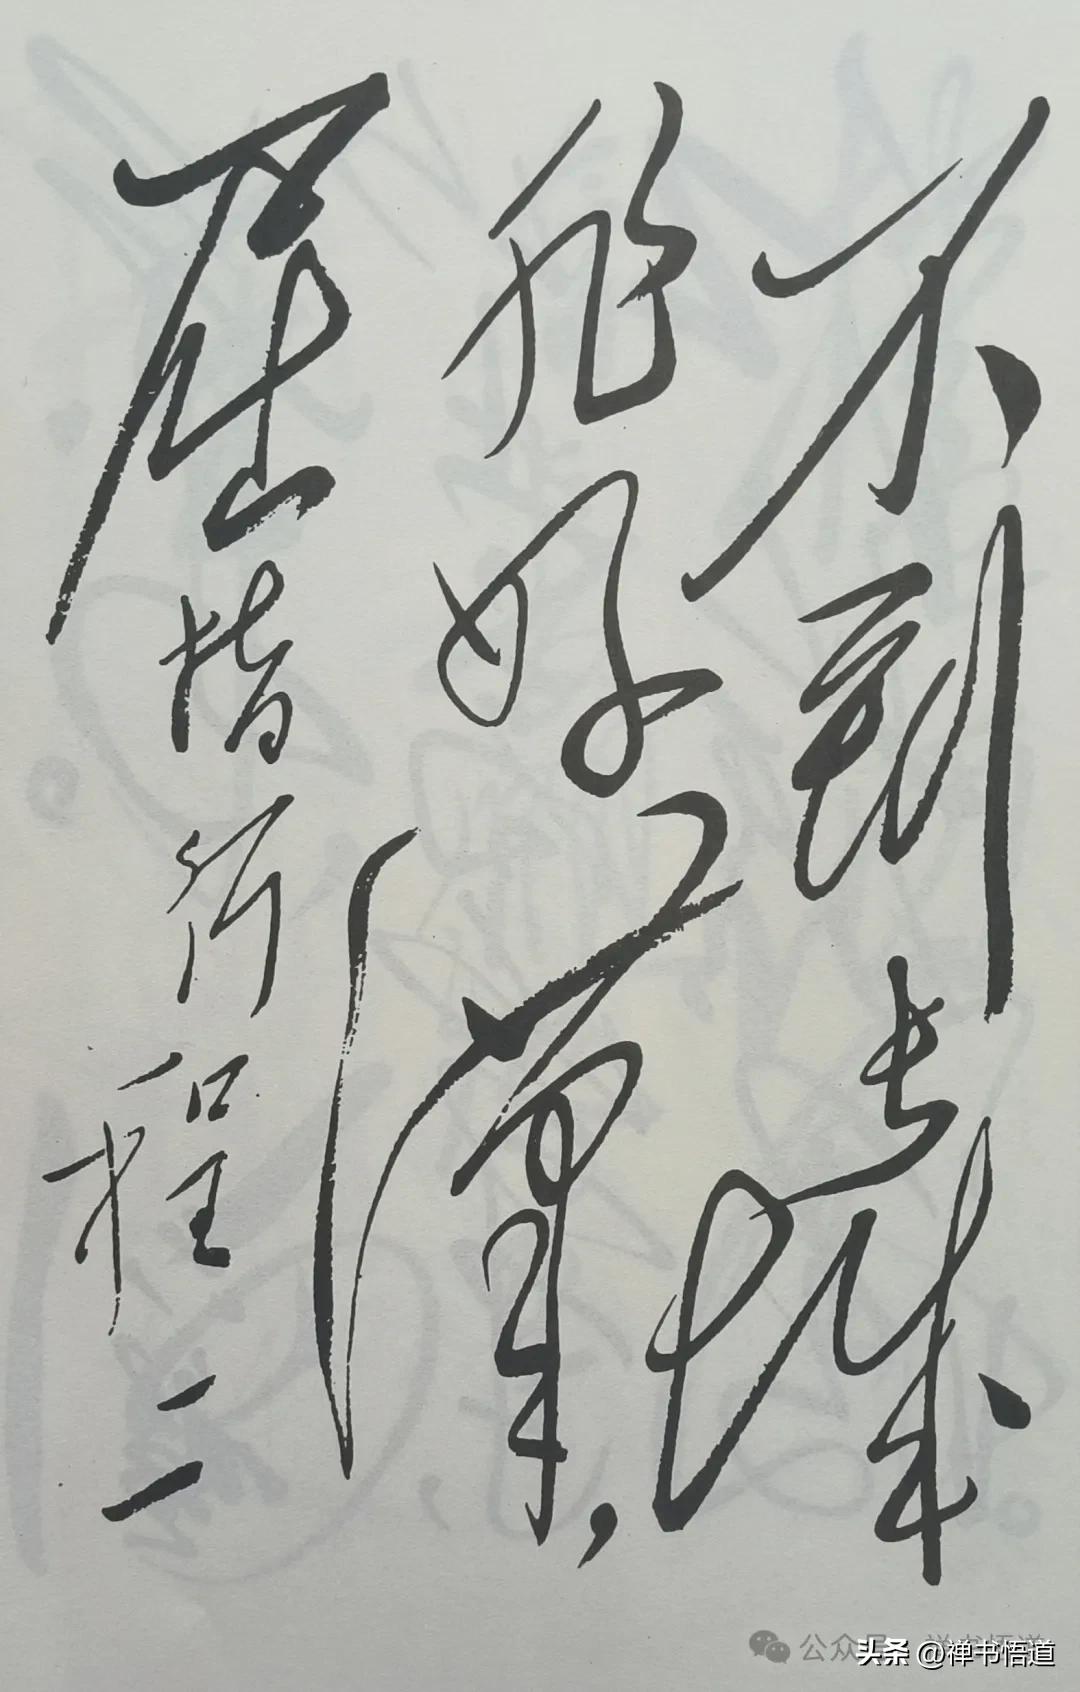 不到长城
非好汉，
屈指行程二
公众号·禅书悟道
头条 @禅书悟道